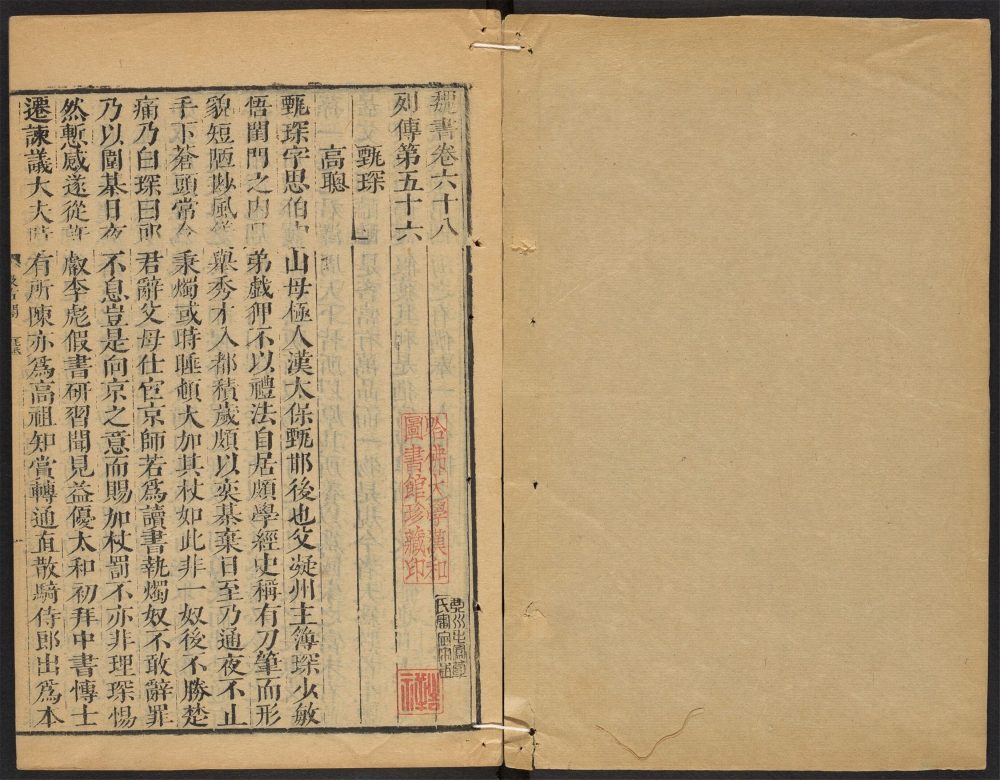 魏書卷六十八
列傳第五十六
甄琛
高聰
甄琛字思伯中山毋極人漢太保甄邯後也父凝州主簿琛少敏
悟閨門之內兄弟戲狎不以禮法自居頗學經史稱有刀筆而形
貌短陋尠風儀舉秀才入都積歲頗以弈棊棄日至乃通夜不止
手下蒼頭常令秉燭或時睡頓大加其杖如此非一奴後不勝楚
痛乃白琛曰郎君辭父母仕宦京師若爲讀書執燭奴不敢辭罪
乃以圍棊日夜不息豈是向京之意而賜加杖罰不亦非理琛惕
然慙感遂從許叡李彪假書研習聞見益優太和初拜中書博士
遷諫議大夫時有所陳亦爲高祖知賞轉通直散騎侍郎出爲本
哈佛大學漢和
圖書館珍藏印